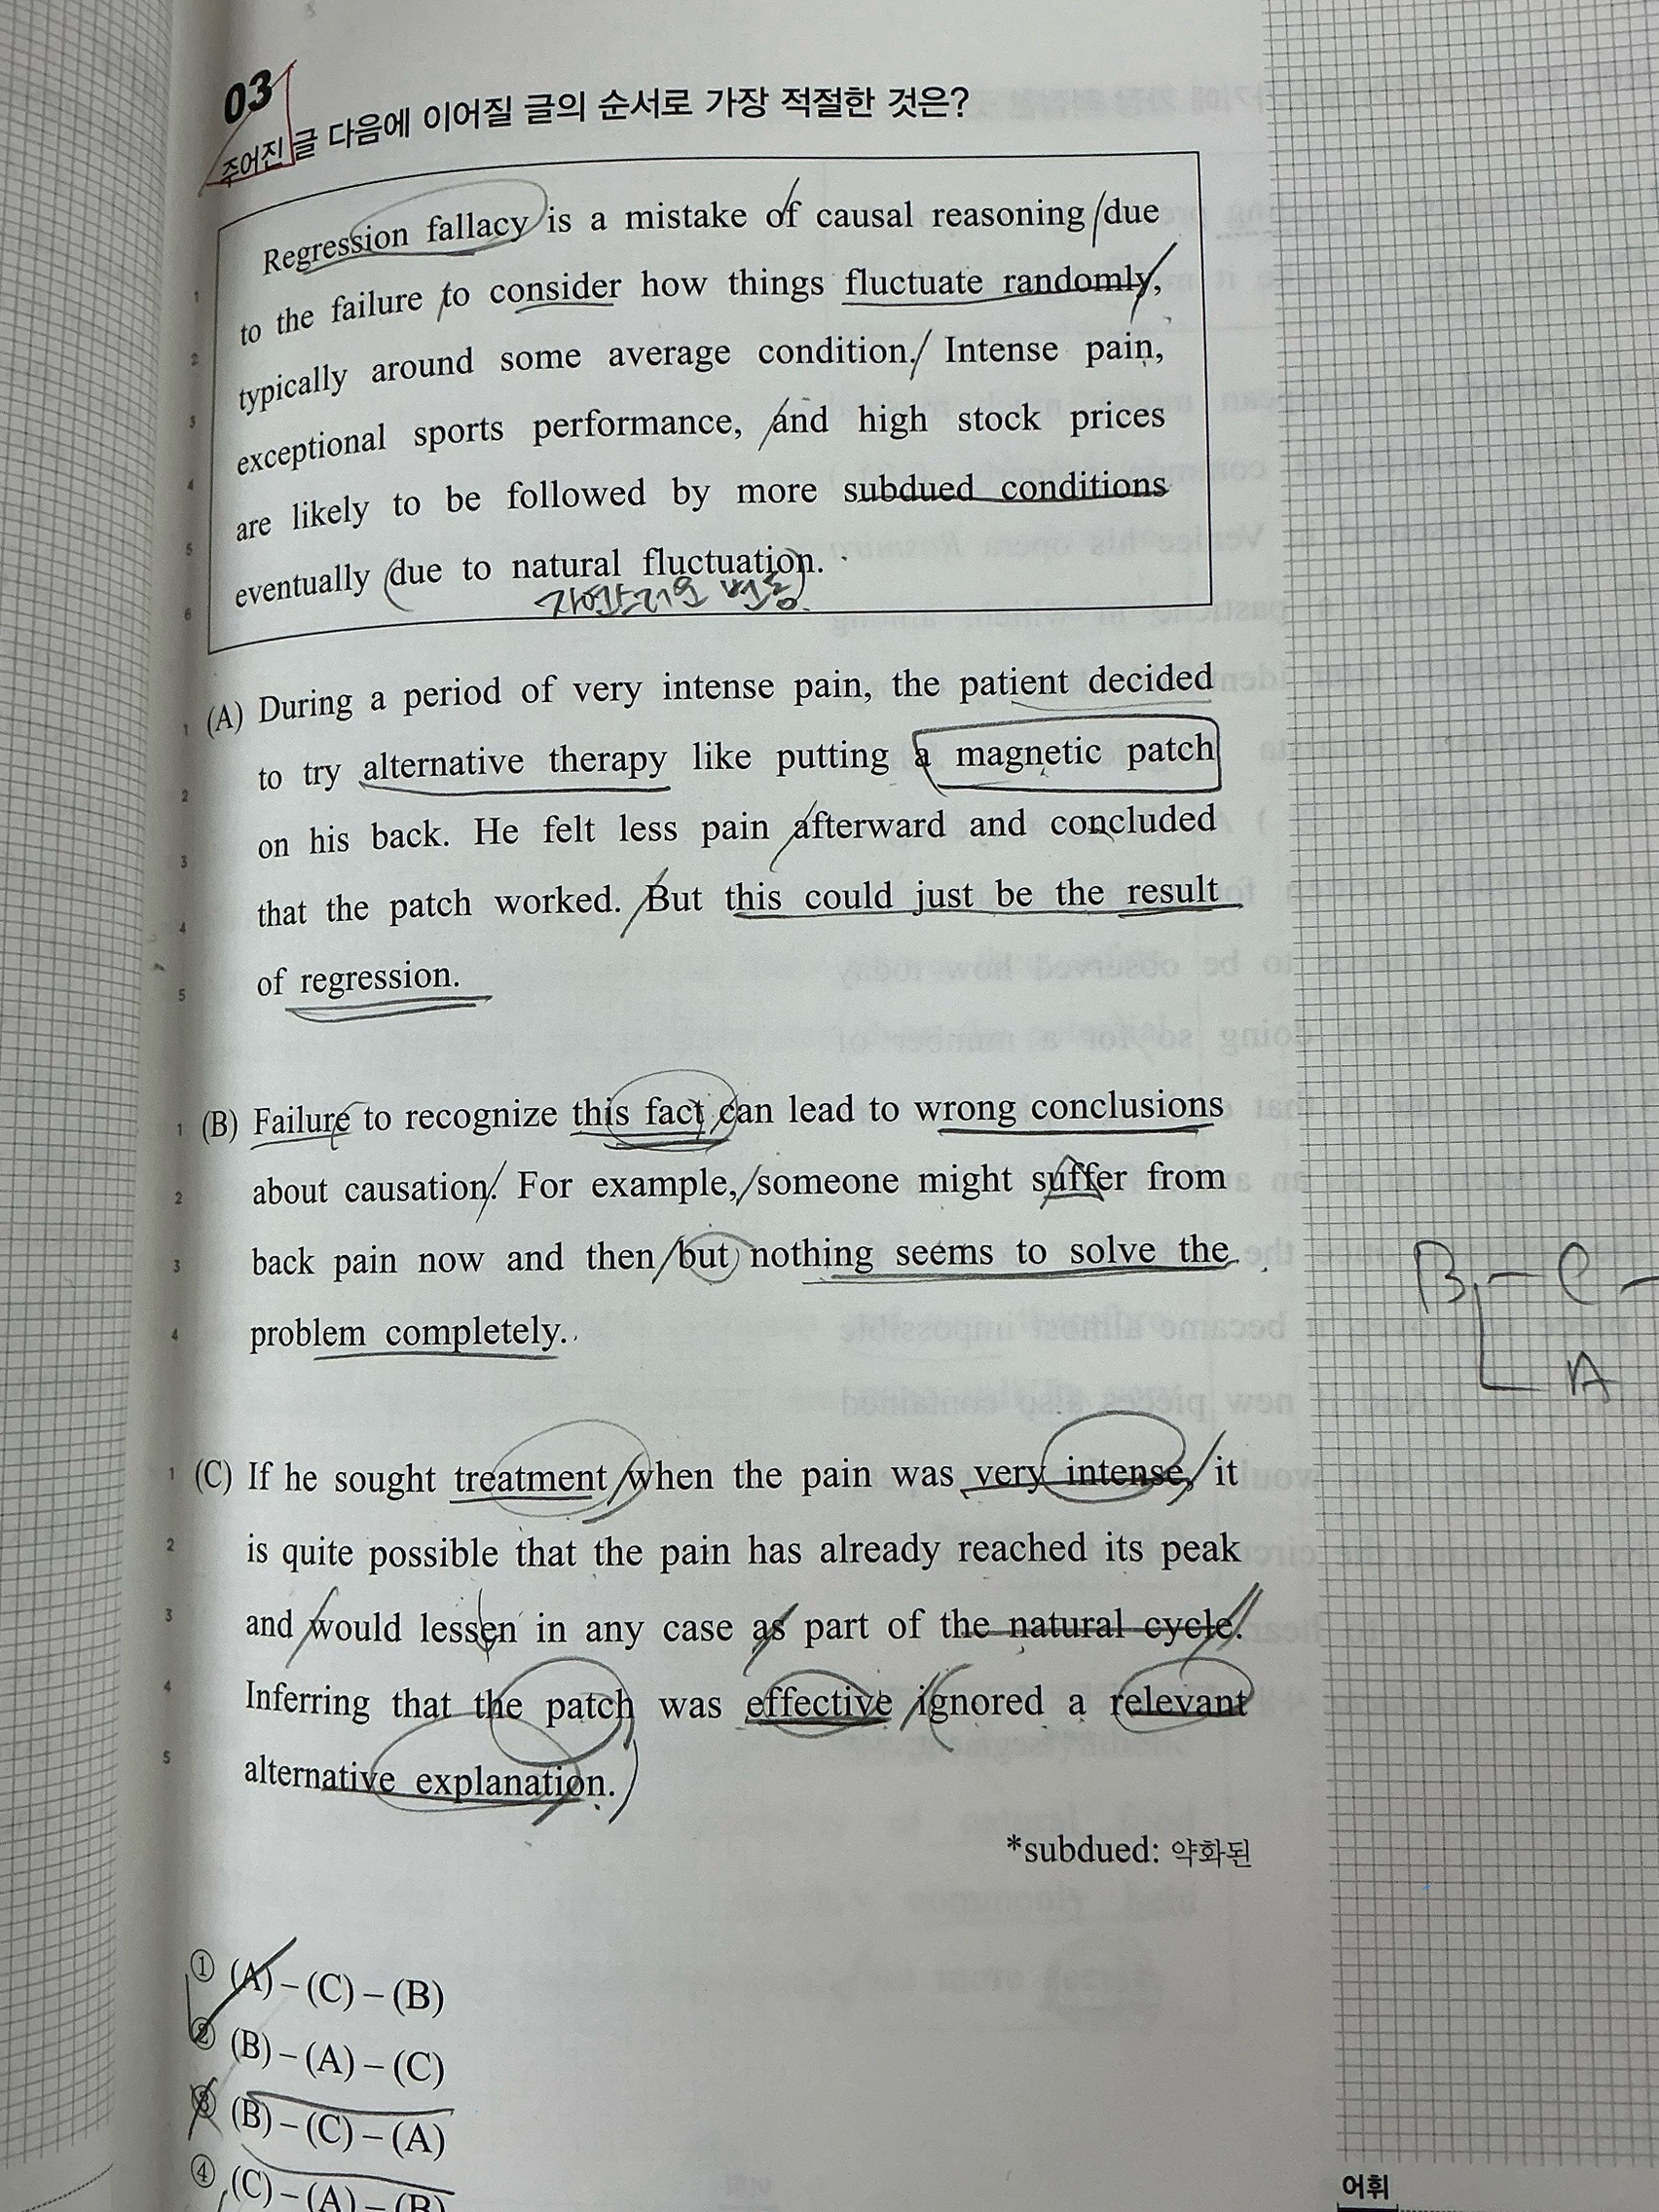 03
주어진 글 다음에 이어질 글의 순서로 가장 적절한 것은?
Regression fallacy is a mistake of causal reasoning due
1 to the failure to consider how things fluctuate randomly,
2 typically around some average condition. Intense pain,
3 exceptional sports performance, and high stock prices
4 are likely to be followed by more subdued conditions
5 eventually due to natural fluctuation.
6 자연스러운 변동
1 (A) During a period of very intense pain, the patient decided
2 to try alternative therapy like putting a magnetic patch
3 on his back. He felt less pain afterward and concluded
4 that the patch worked. But this could just be the result
5 of regression.
1 (B) Failure to recognize this fact can lead to wrong conclusions
2 about causation. For example, someone might suffer from
3 back pain now and then but nothing seems to solve the
4 problem completely.
B - C -
A
1 (C) If he sought treatment when the pain was very intense, it
2 is quite possible that the pain has already reached its peak
3 and would lessen in any case as part of the natural cycle.
4 Inferring that the patch was effective ignored a relevant
5 alternative explanation.
*subdued: 약화된
① (A) – (C) – (B)
② (B) – (A) – (C)
③ (B) – (C) – (A)
④ (C) – (A) – (B)
어휘